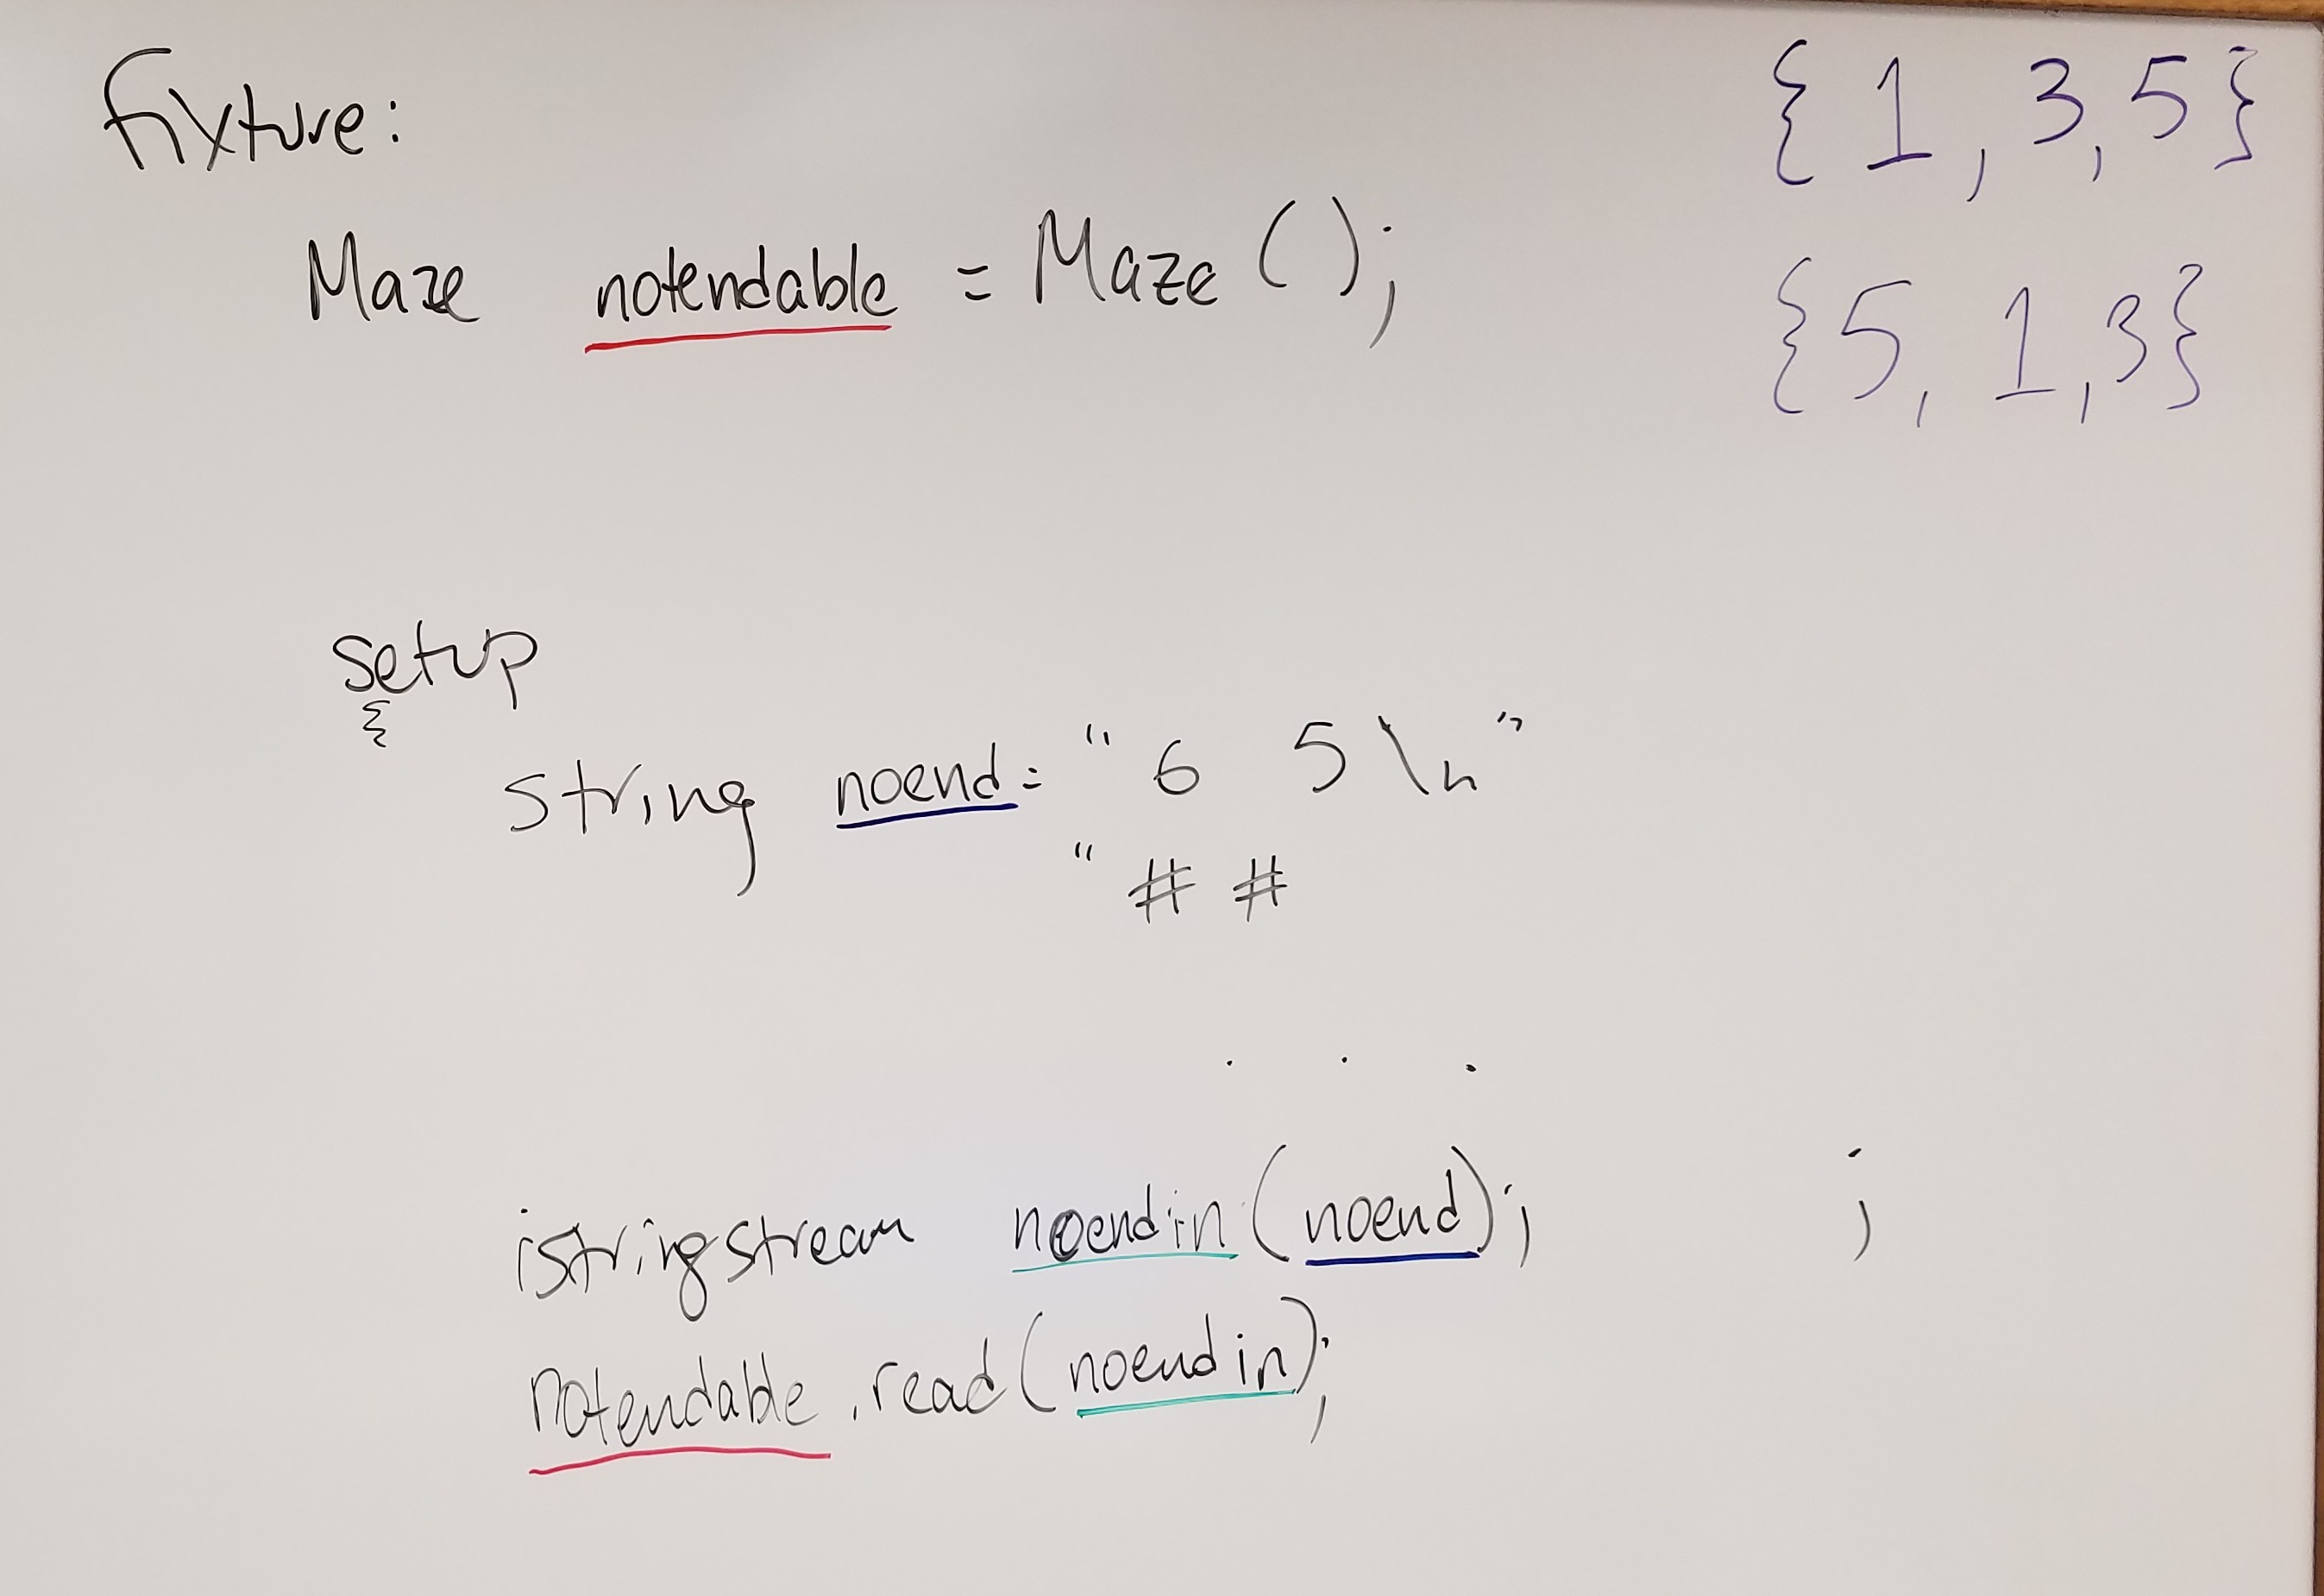 fixture:
Maze notendable = Maze ();
{ 1, 3, 5 }
{ 5, 1, 3 }
setup
{
string noend = "6 5\n"
"# #
. . .
;
istringstream noendin (noend);
notendable.read(noendin);